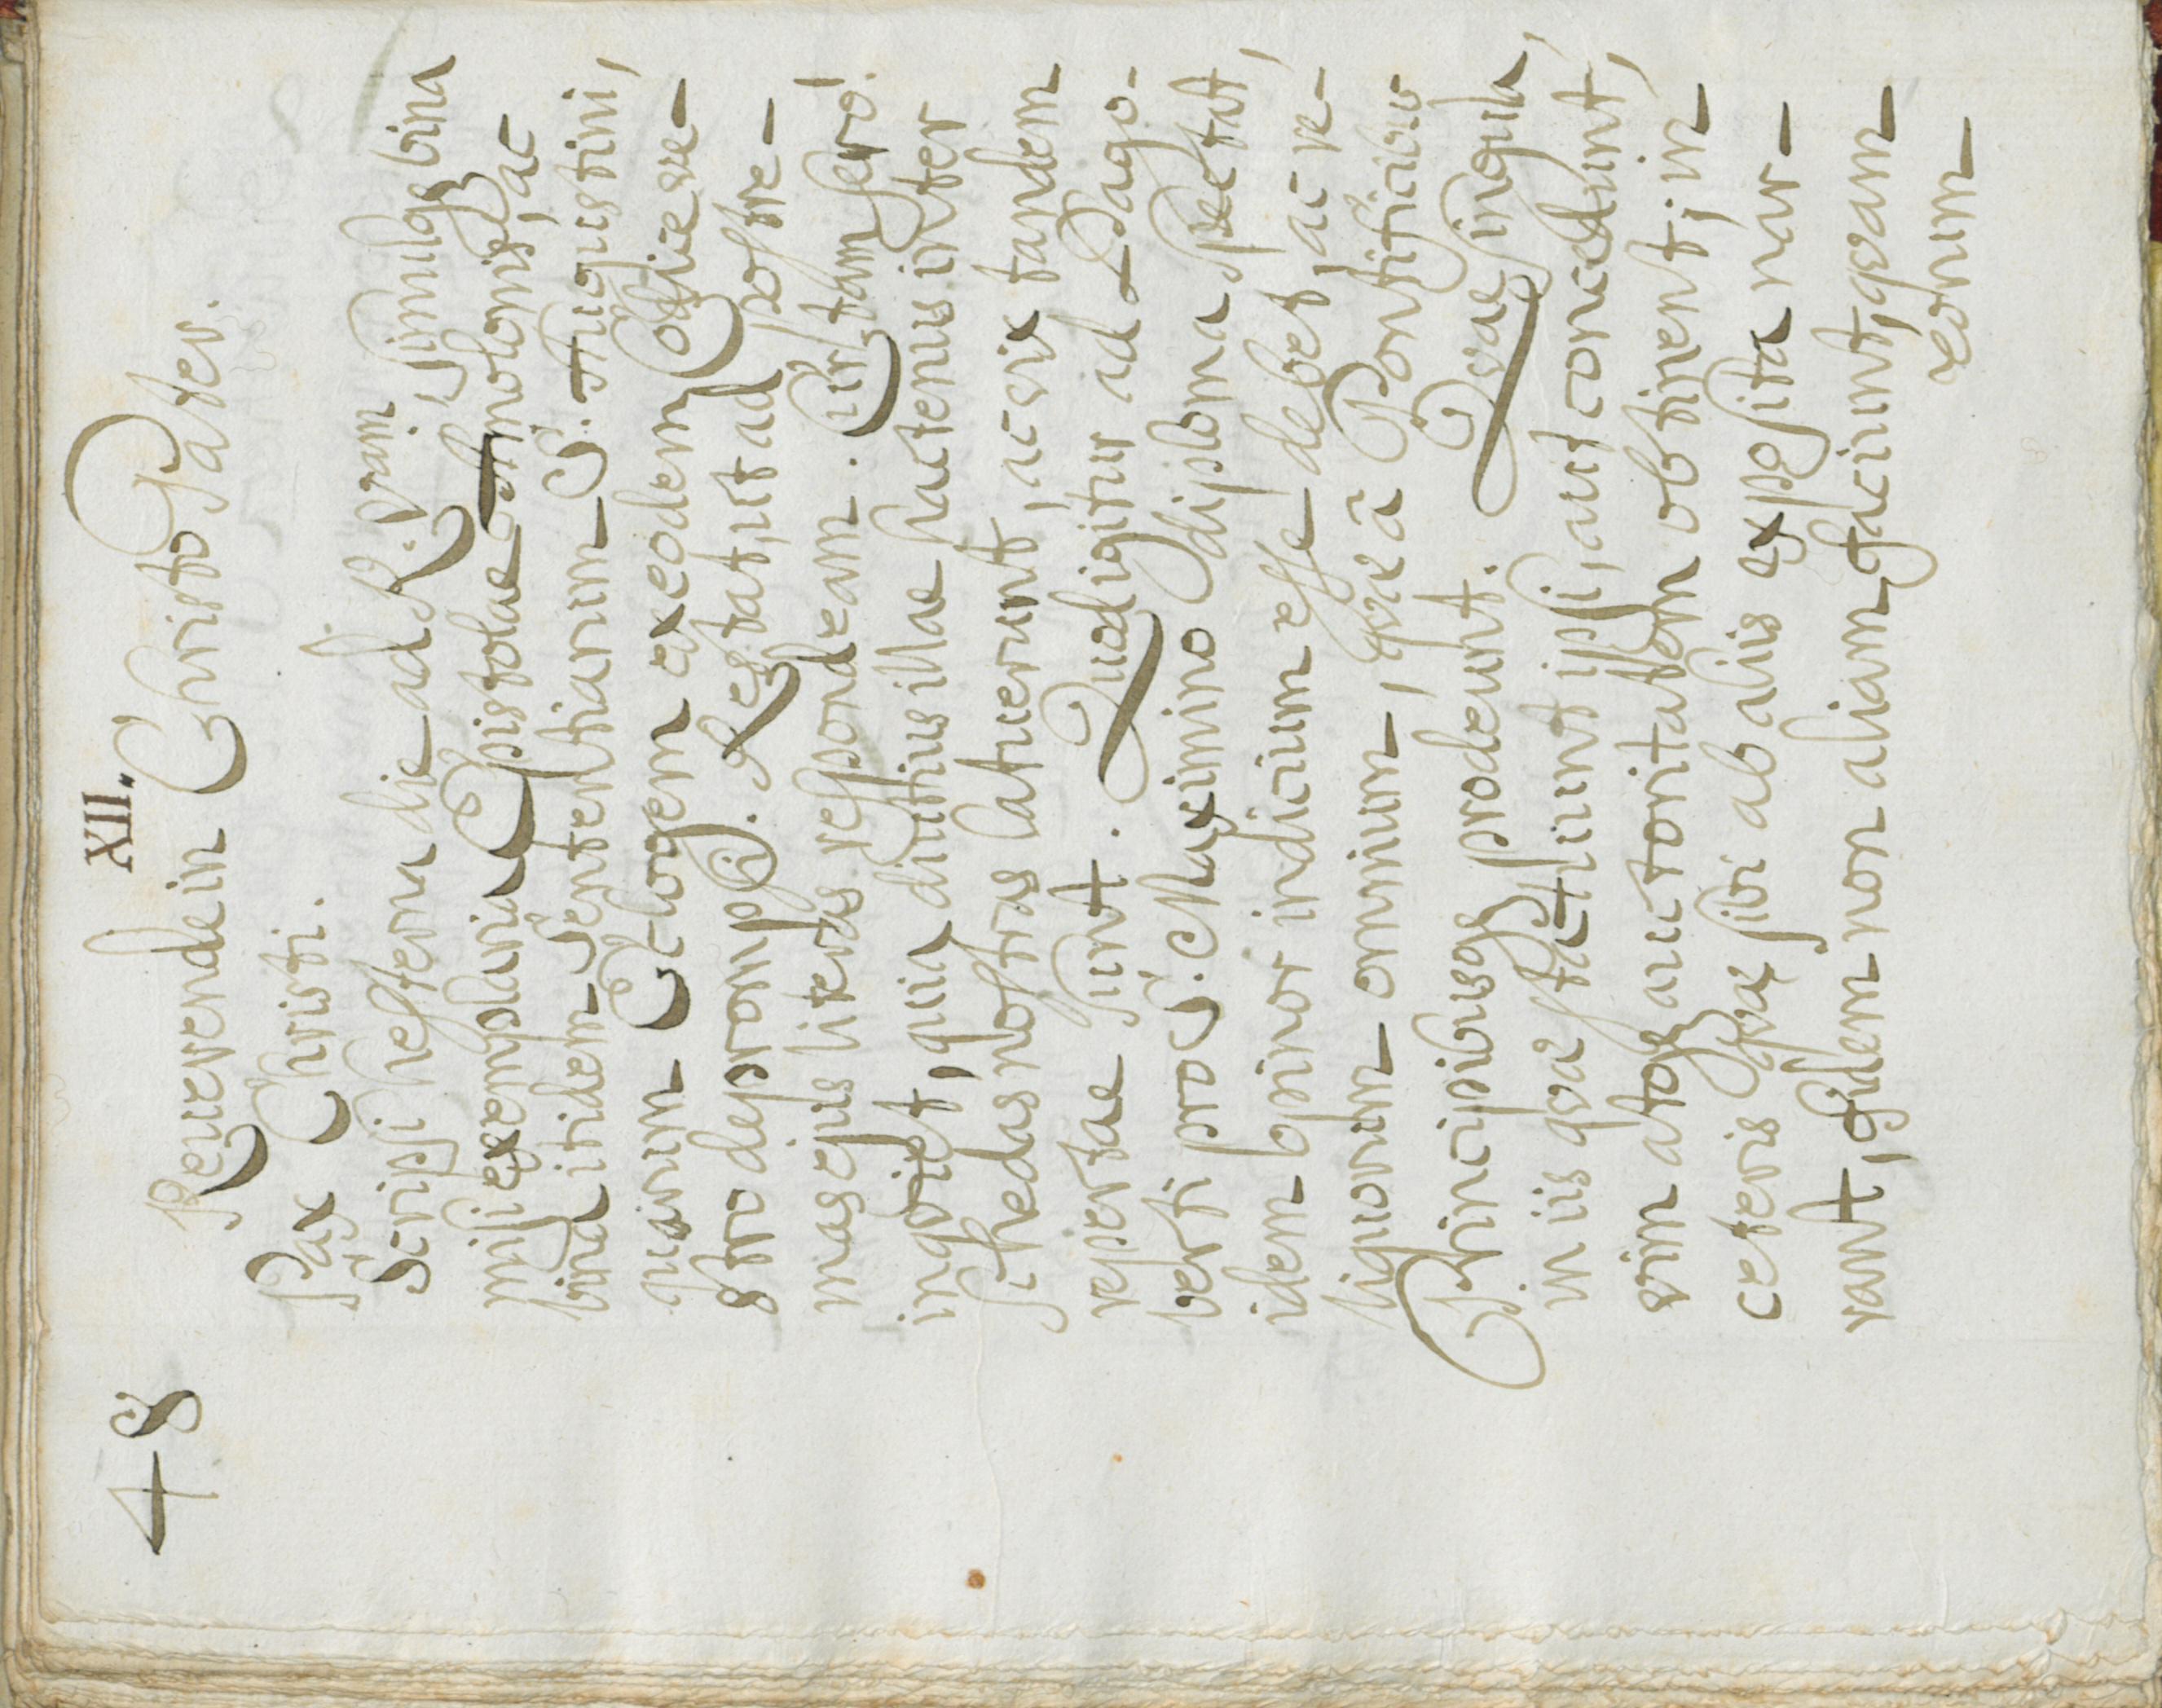 48
XII.
Reverende in Christo Pater.
Pax Christi.
Scripsi hesterna die ad R. V.ram, simulq; bina
misi exemplaria Epistolae Amolonis, ac
bina itidem Sententiarum S. Augustini,
quarum Eclogem ex eodem Codice ve-
stro deprompsi. Restat, ut ad postre-
mas ejus literas respondeam. Cur tam sero!
inqviet, quia diutius illae hactenus inter
schedas nostras latuerunt, ac vix tandem
repertae sunt. Quod igitur ad Dago-
berti pro S. Maximino diploma spectat,
idem opinor indicium esse debet, ac re-
liquorum omnium, qvae à Pontificibus
Principibusq; prodeunt. Qvae singula,
in iis qvae statuunt ipsi, aut concedunt,
vim atq; auctoritatem obtinent; in
ceteris qvae sibi ab aliis exposita nar-
rant, fidem non aliam faciunt, qvam
eorum